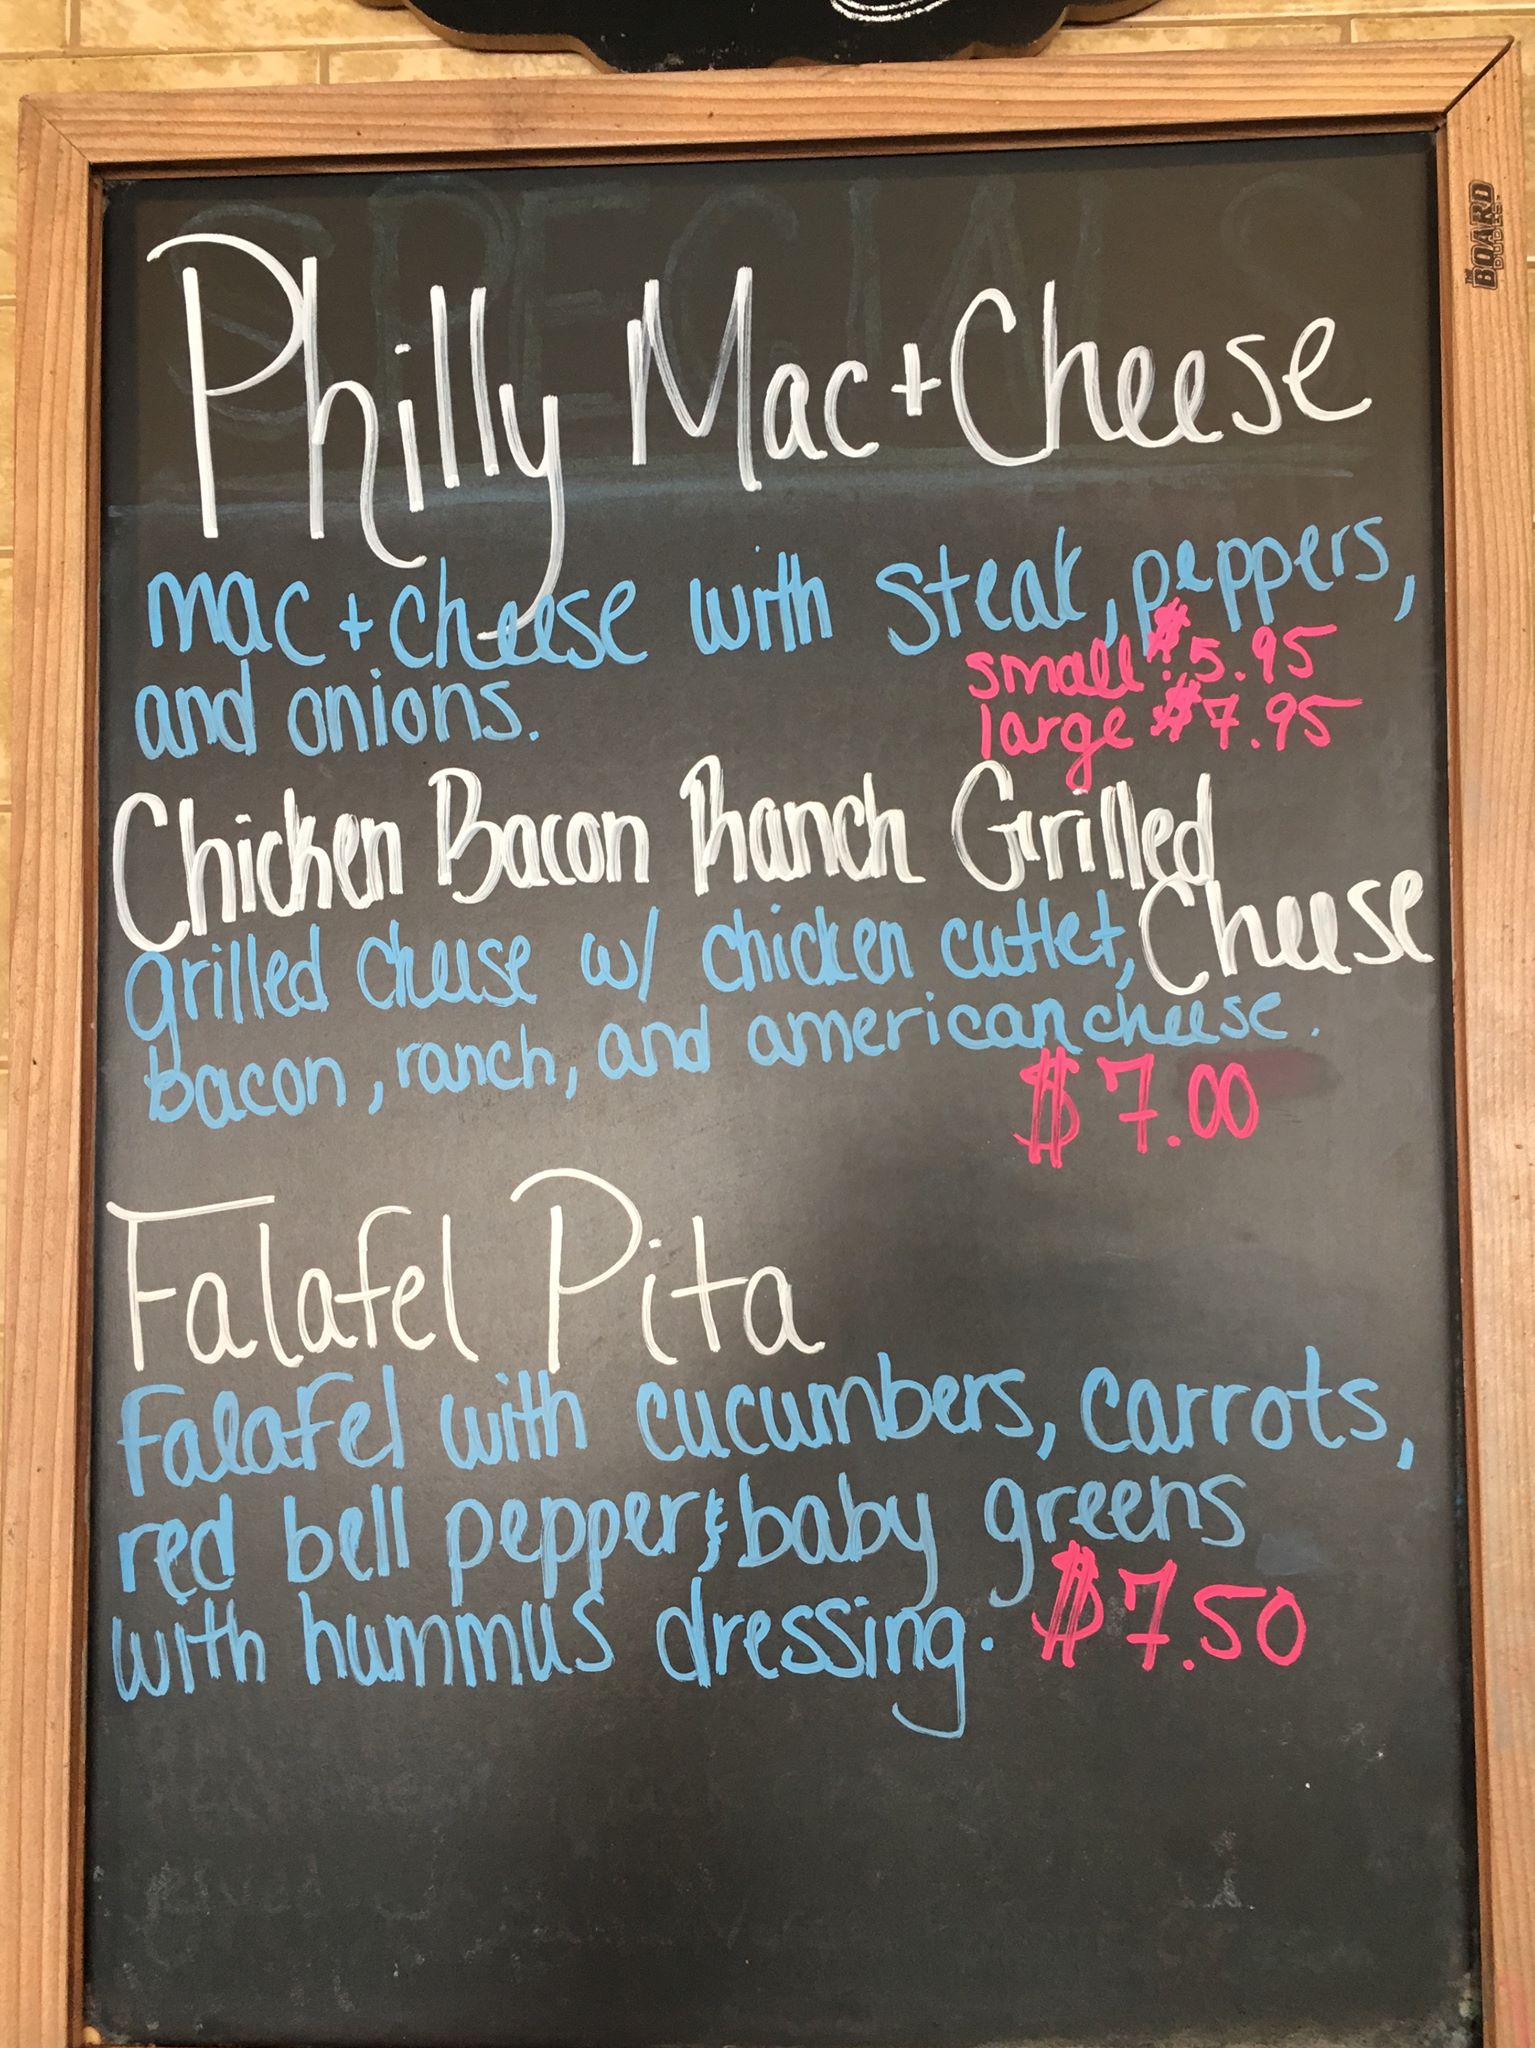 SPECIALS
Philly Mac + Cheese
mac + cheese with steak, peppers,
and onions.
small: $5.95
large $7.95
Chicken Bacon Ranch Grilled
Cheese
grilled cheese w/ chicken cutlet,
bacon, ranch, and american cheese.
$7.00
Falafel Pita
Falafel with cucumbers, carrots,
red bell pepper & baby greens
with hummus dressing. $7.50
THE
BOARD
DUDES